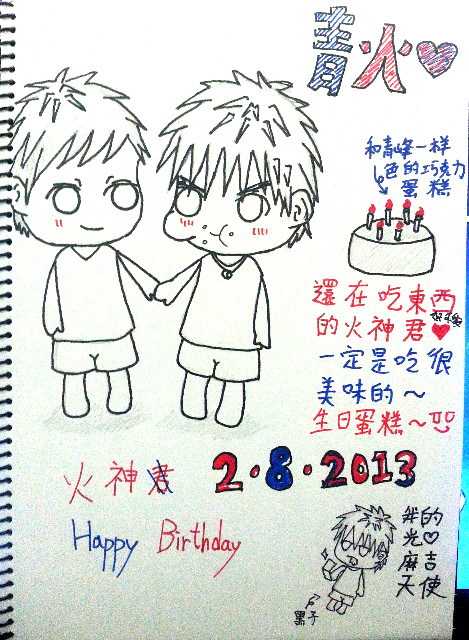 青火♥
和青峰一样
色的巧克力
蛋糕
還在吃東西
的火神君♥
一定是吃很
美味的～
生日蛋糕～
火神君
2·8·2013
Happy Birthday
我的
光♡
麻吉
天使
黑子